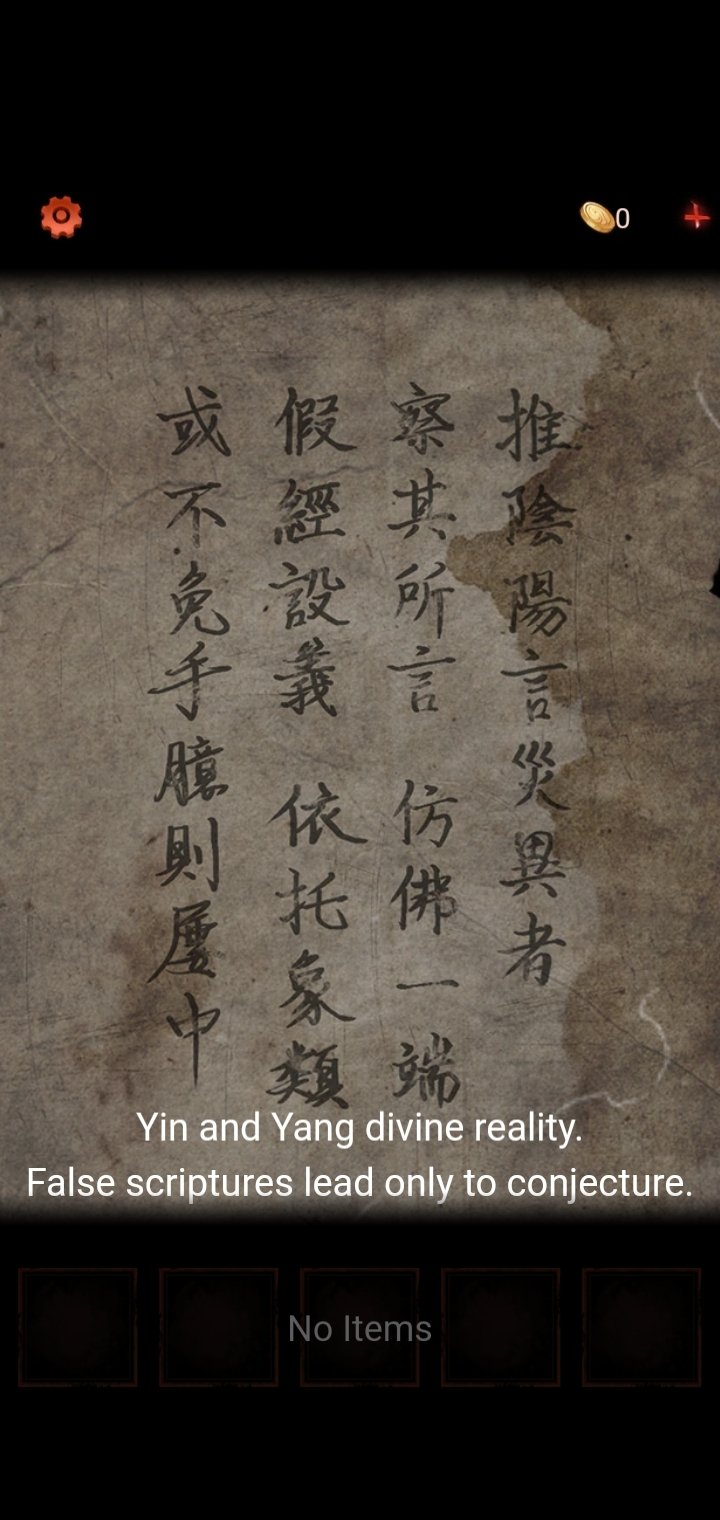 0
推陰陽言災異者
察其所言 仿佛一端
假經設義 依托象類
或不免手臆則屢中
Yin and Yang divine reality.
False scriptures lead only to conjecture.
No Items